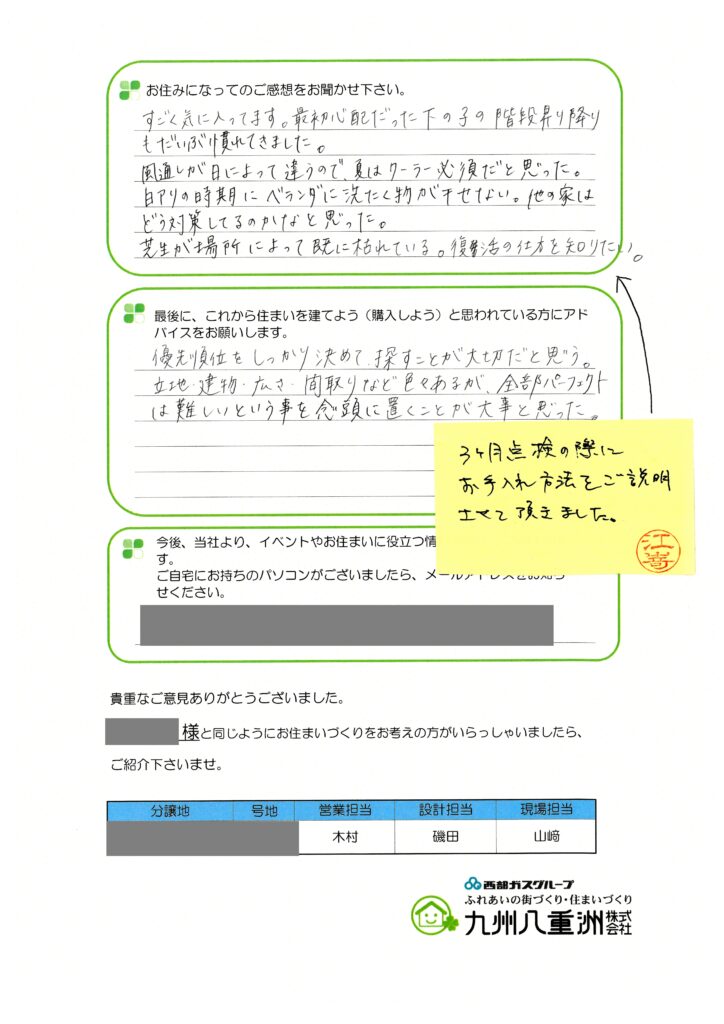 お住みになってのご感想をお聞かせ下さい。
すごく気に入ってます。最初心配だった下の子の階段昇り降り
もだいぶ慣れてきました。
風通しが日によって違うので、夏はクーラー必須だと思った。
白アリの時期にベランダに洗たく物が干せない。他の家は
どう対策してるのかなと思った。
芝生が場所によって既に枯れている。復活の仕方を知りたい。
最後に、これから住まいを建てよう（購入しよう）と思われている方にアド
バイスをお願いします。
優先順位をしっかり決めて、探すことが大切だと思う。
立地・建物・広さ・間取りなど色々あるが、全部パーフェクト
は難しいという事を念頭に置くことが大事と思った。
3ヶ月点検の際に
お手入れ方法をご説明
させて頂きました。
江嵜
今後、当社より、イベントやお住まいに役立つ情
す。
ご自宅にお持ちのパソコンがございましたら、メールアドレスをお知ら
せください。
貴重なご意見ありがとうございました。
様と同じようにお住まいづくりをお考えの方がいらっしゃいましたら、
ご紹介下さいませ。
分譲地 号地 営業担当 設計担当 現場担当
木村 磯田 山﨑
西部ガスグループ
ふれあいの街づくり・住まいづくり
九州八重洲株式会社